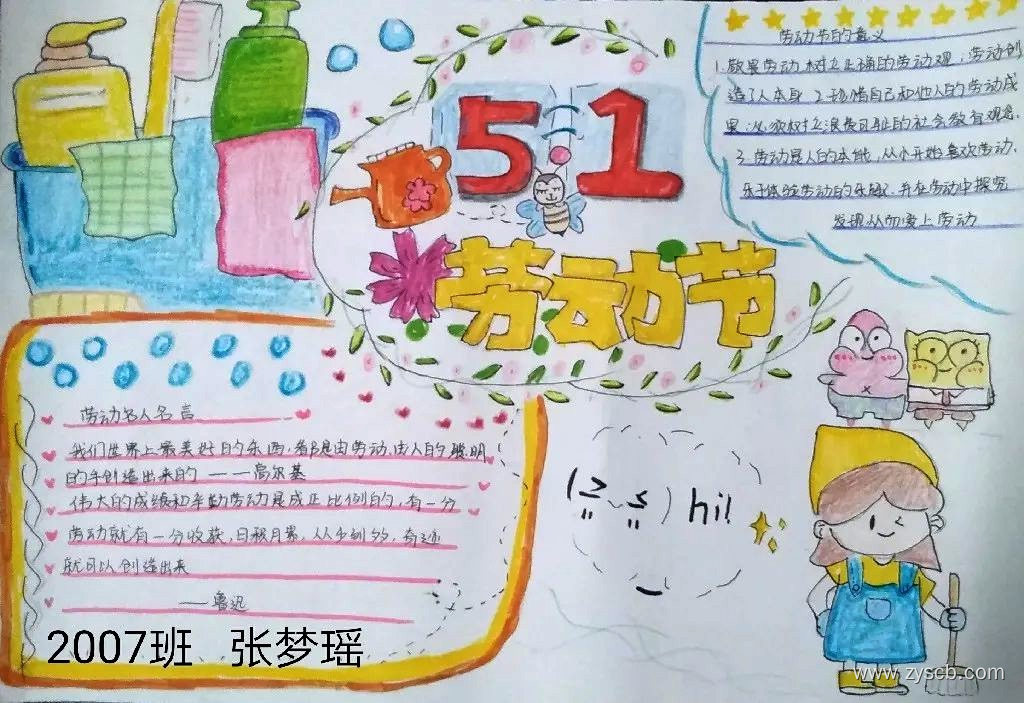 51
劳动节
劳动节的意义
1.敬畏劳动,树立正确的劳动观,劳动创
造了人本身.2.珍惜自己和他人的劳动成
果,必须树立浪费可耻的社会教育观念.
3.劳动是人的本能,从小开始喜欢劳动.
乐于体验劳动的乐趣.并在劳动中探究
发现从而爱上劳动
劳动名人名言
我们世界上最美好的东西,都是由劳动,由人的聪明
的手创造出来的 ——高尔基
伟大的成绩和辛勤劳动是成正比例的,有一分
劳动就有一分收获,日积月累,从少到多,奇迹
就可以创造出来
——鲁迅
hi!
2007班 张梦瑶
www.zyscb.com